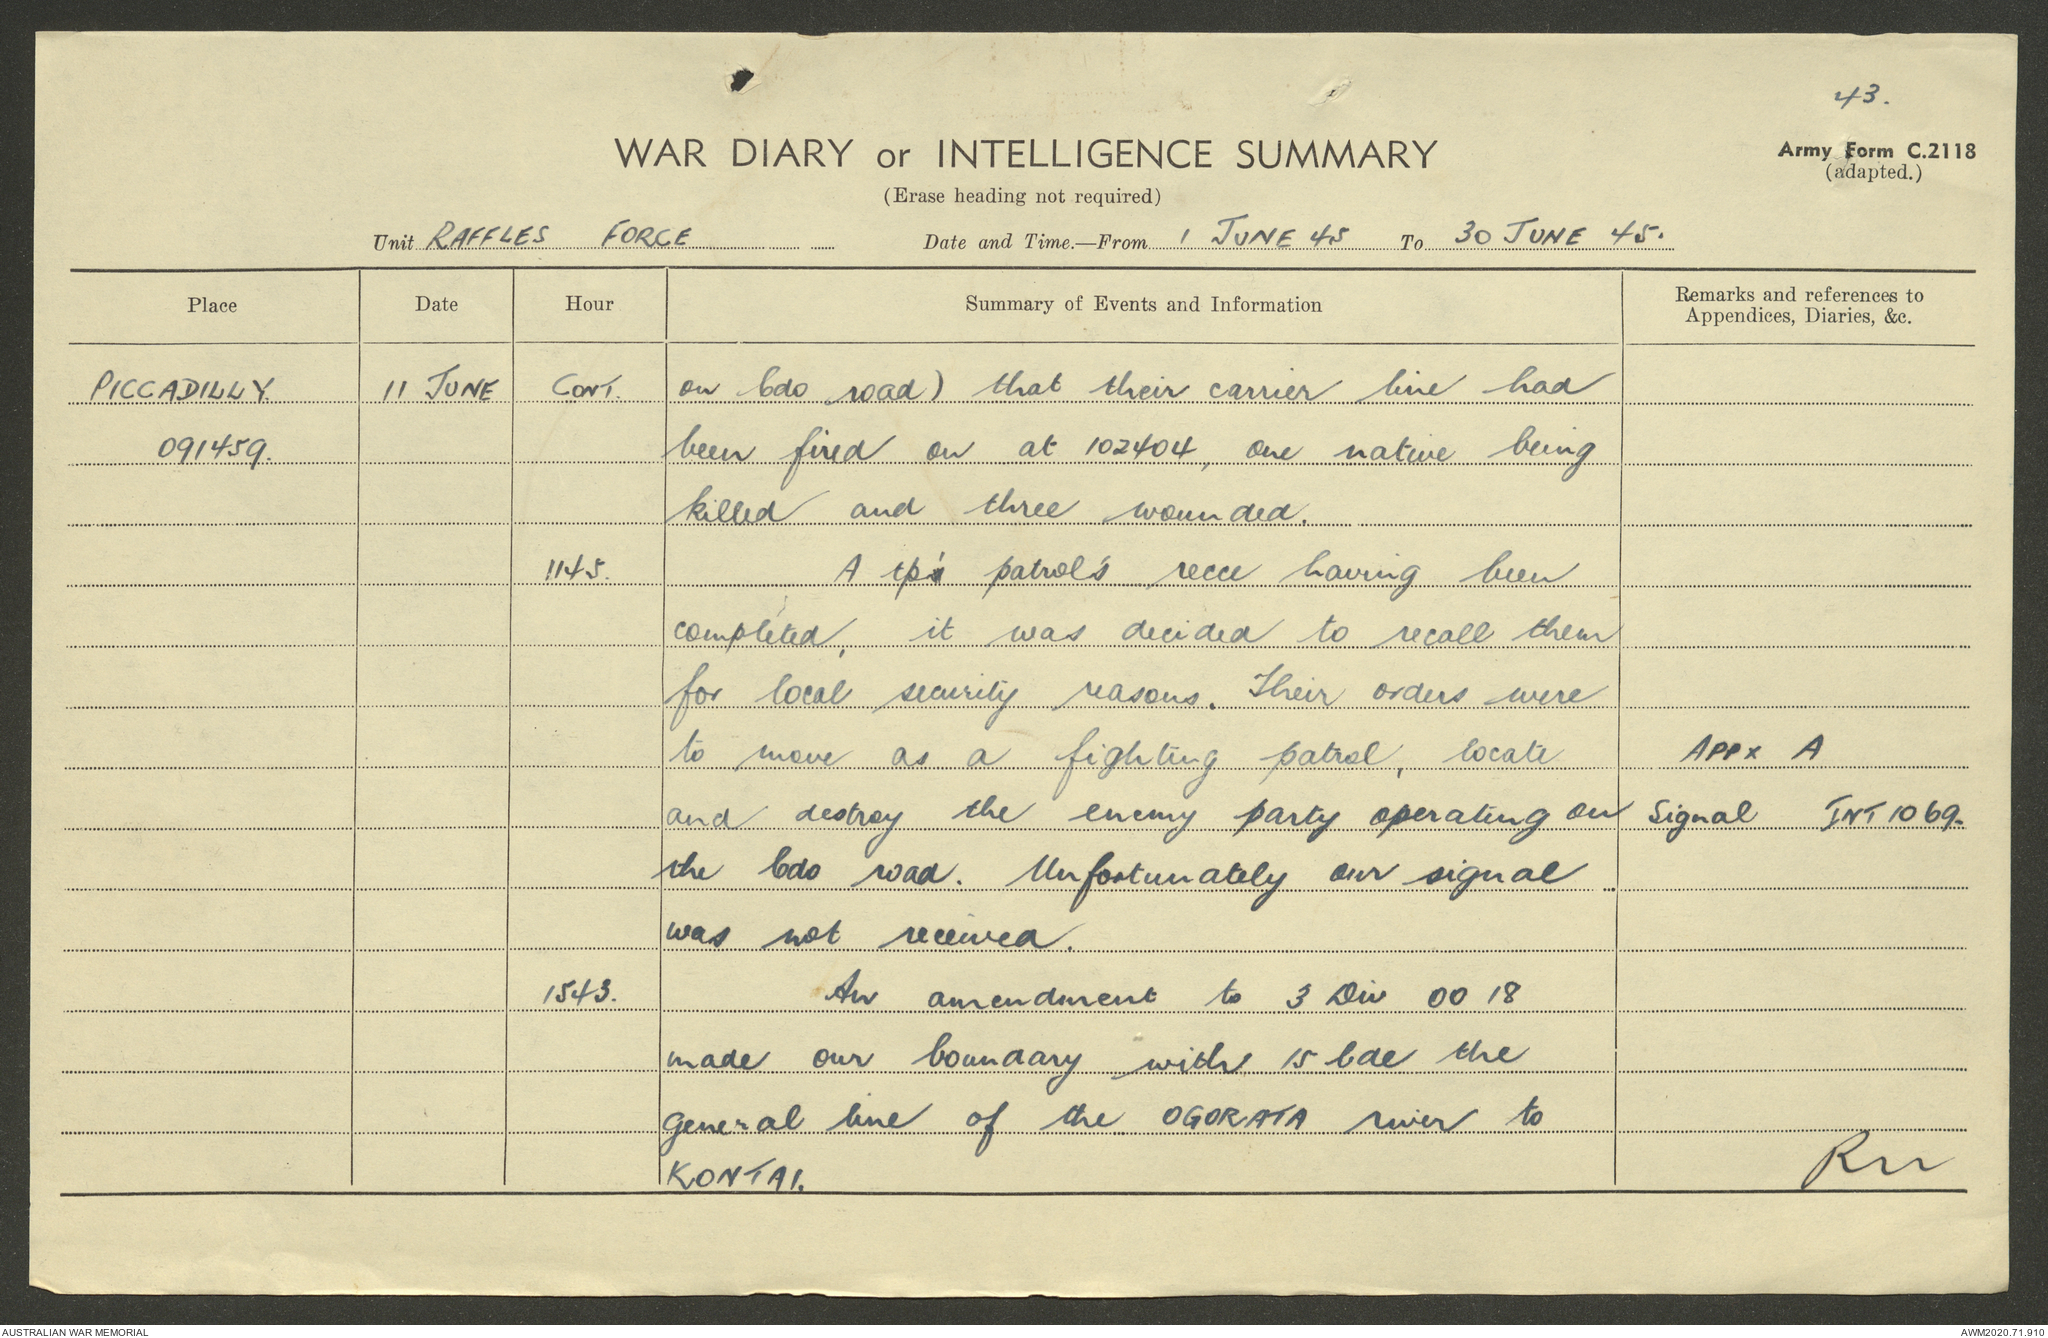 43.
WAR DIARY or INTELLIGENCE SUMMARY
Army Form C.2118
(adapted.)
(Erase heading not required)
Unit RAFFLES FORCE Date and Time.—From 1 JUNE 45 To 30 JUNE 45.
Place Date Hour Summary of Events and Information Remarks and references to
Appendices, Diaries, &c.
PICCADILLY. 11 JUNE CONT. on bdo road) that their carrier line had
091459. been fired on at 102404, one native being
killed and three wounded.
1145. A tp patrol's recce having been
completed, it was decided to recall them
for local security reasons. Their orders were
to move as a fighting patrol, locate APPX A
and destroy the enemy party operating on Signal INT 1069.
the bdo road. Unfortunately our signal
was not received.
1543. An amendment to 3 Div OO 18
made our boundary with 15 bde the
general line of the OGORATA river to
KONTAI.
AUSTRALIAN WAR MEMORIAL AWM2020.71.910